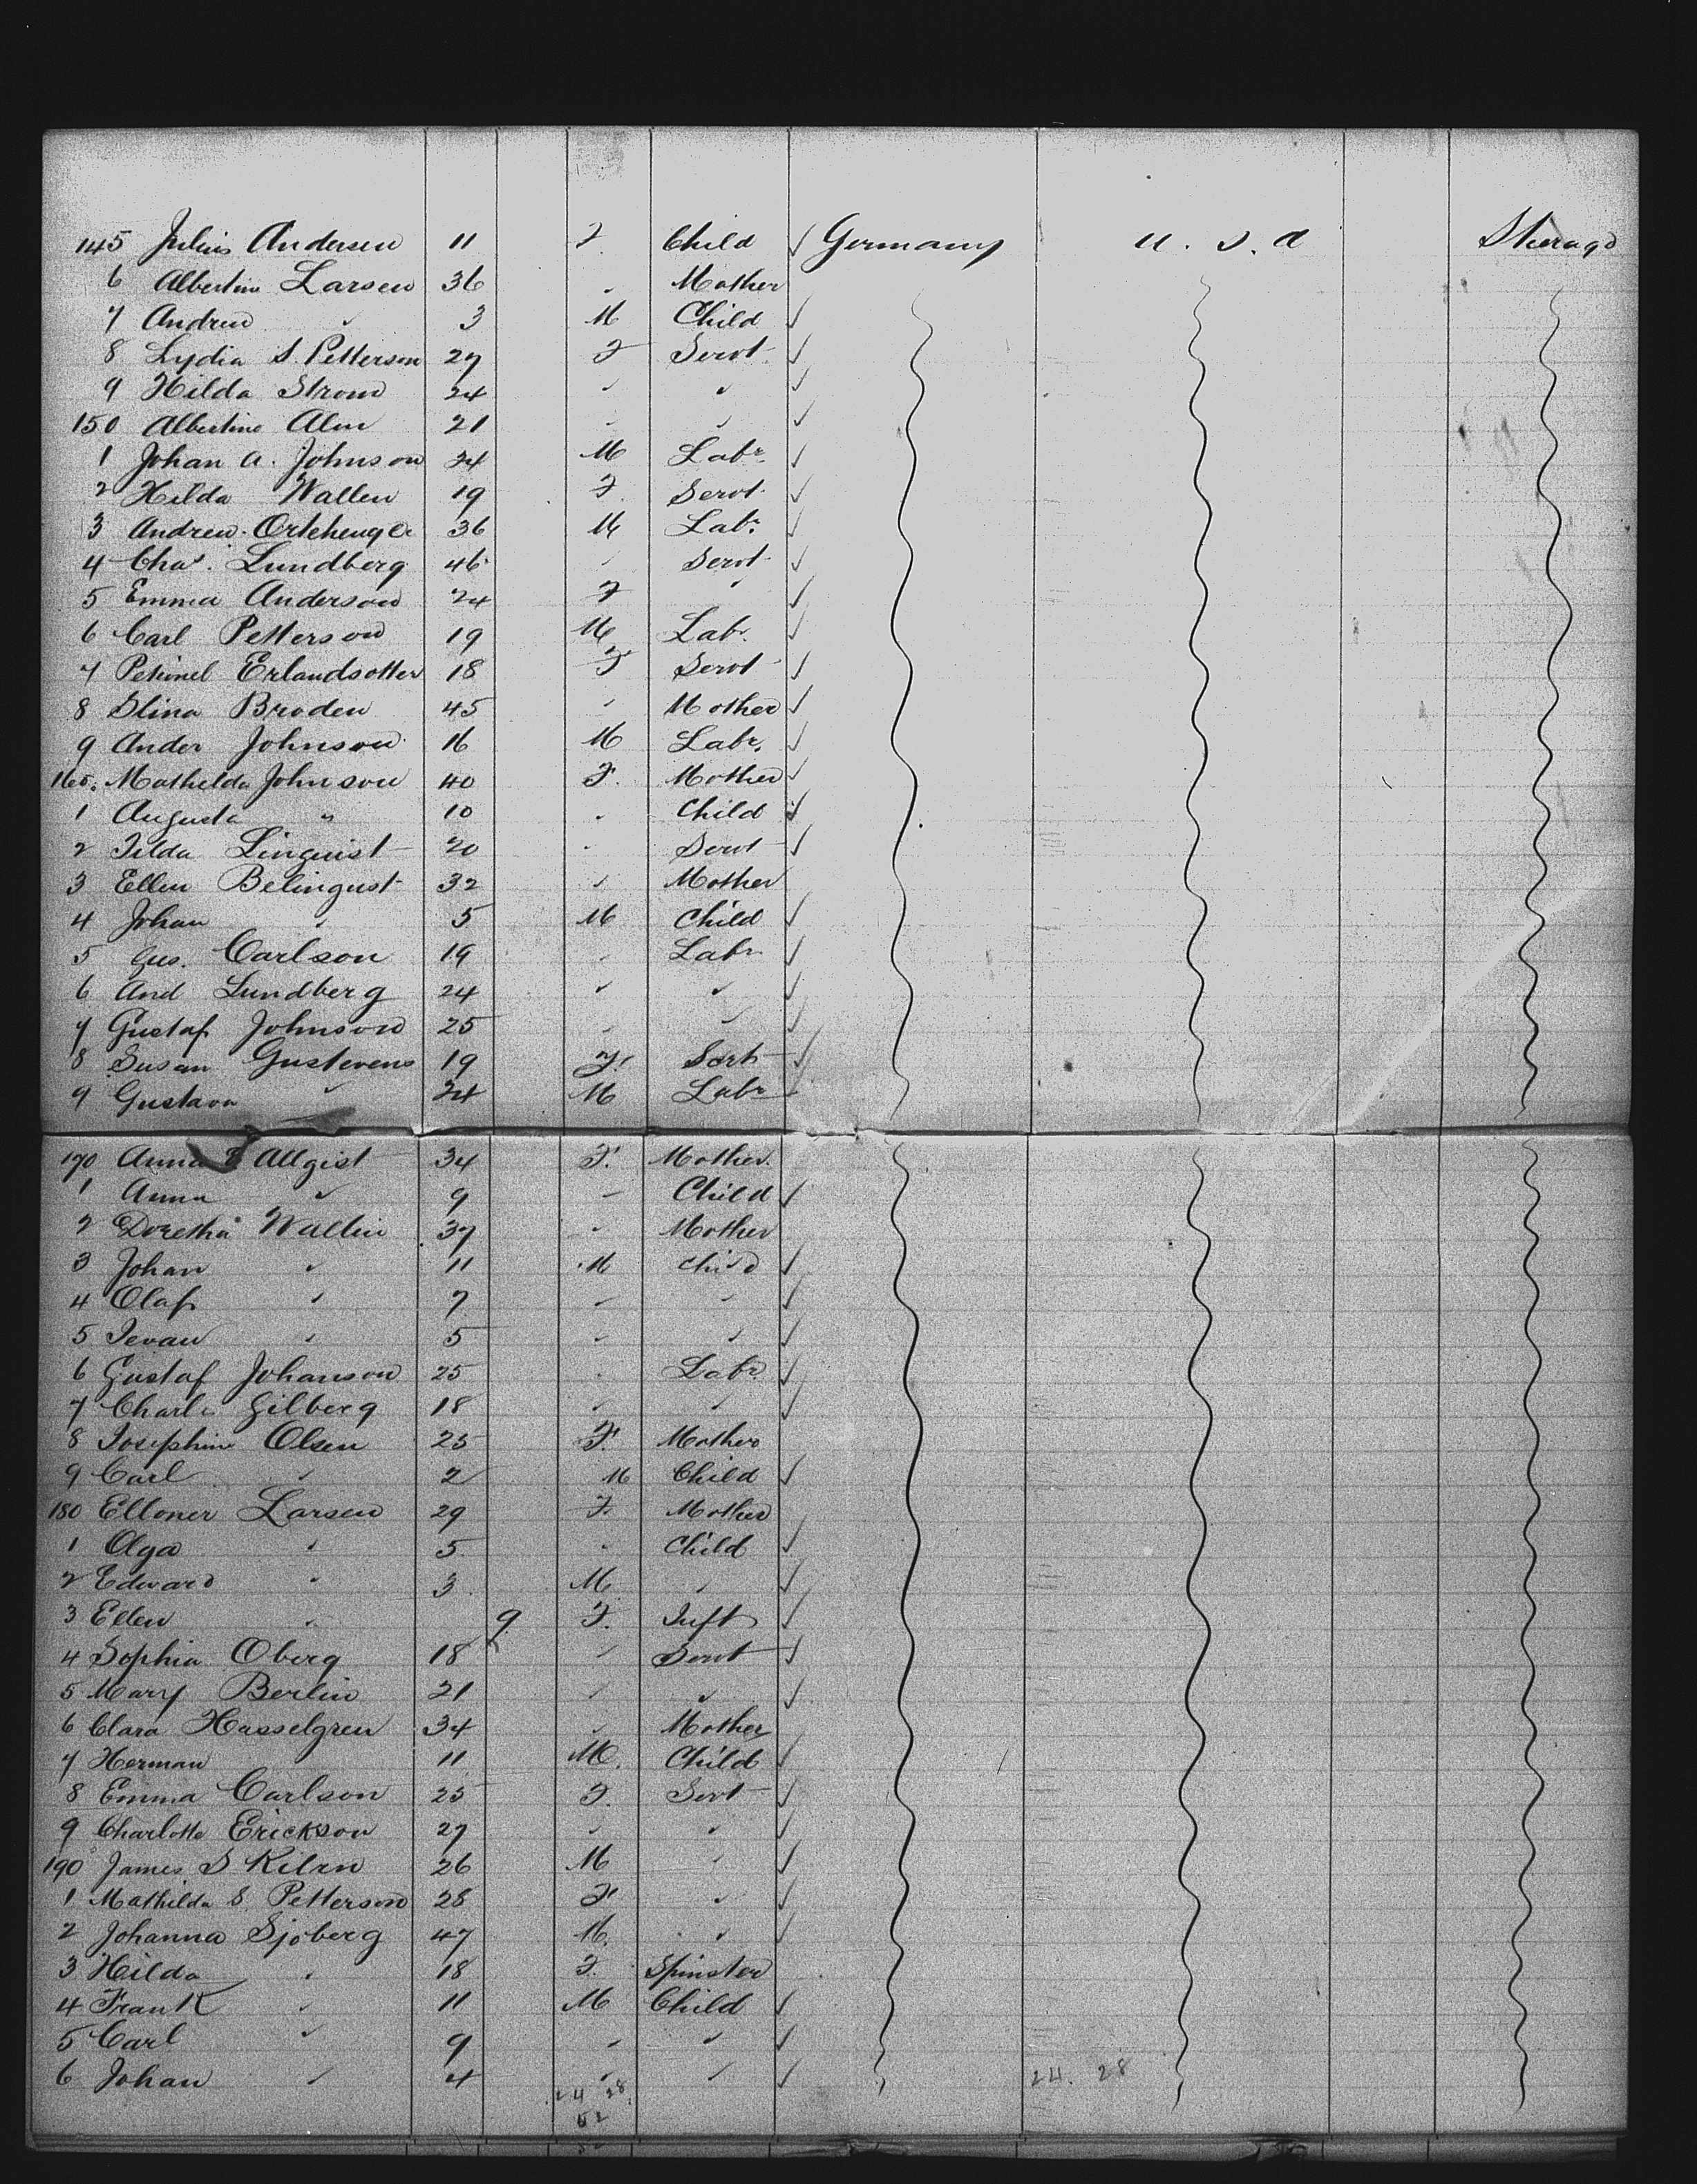 145 Julius Andersen 11 F. Child ✓ Germany U. S. A Sterage
6 Albertine Larsen 36 " Mother
7 Andrew " 3 M Child ✓
8 Lydia S. Petterson 27 F Servt. ✓
9 Hilda Strom 24 " " ✓
150 Albertine Alm 21 " " ✓
1 Johan A. Johnson 24 M Labr. ✓
2 Hilda Wallen 19 F. Servt. ✓
3 Andrew 36 M Labr. ✓
4 Chas. Lundberg 46 " Servt. ✓
5 Emma Anderson 24 F " ✓
6 Carl Petterson 19 M Labr. ✓
7 Erlandsotter 18 F Servt ✓
8 Broden 45 " Mother ✓
9 Ander Johnson 16 M Labr. ✓
160. Mathelda Johnson 40 F. Mother ✓
1 Augusta " 10 " Child ✓
2 Tilda Linquist 20 " Servt ✓
3 Ellen Belinqust 32 " Mother
4 Johan " 5 M Child ✓
5 Gus. Carlson 19 " Labr ✓
6 And Lundberg 24 " " ✓
7 Gustaf Johnson 25 " " ✓
8 Susan Gustevens 19 F. Sert ✓
9 Gustava " 24 M Labr
170 Anna Allgist 34 F. Mother.
1 Anna " 9 " Child ✓
2 Doretha Wallin 37 " Mother
3 Johan " 11 M Child ✓
4 Olaf " 7 " " ✓
5 " 5 " " ✓
6 Gustaf Johanson 25 " Labr ✓
7 Charls Gilberg 18 " " ✓
8 Josephine Olsen 25 F. Mother
9 Carl " 2 M Child ✓
180 Elloner Larsen 29 F. Mother
1 Olga " 5 " Child ✓
2 Edward " 3 M " ✓
3 Ellen " 9 F. Inft ✓
4 Sophia Oberg 18 " Servt ✓
5 Mary Berlin 21 " " ✓
6 Clara Hasselgren 34 " Mother
7 Herman 11 M. Child ✓
8 Emma Carlson 25 F. Servt ✓
9 Charlotte Erickson 27 " " ✓
190 James S 26 M " ✓
1 Mathilda S. Petterson 28 F " ✓
2 Johanna Sjoberg 47 M. " ✓
3 Hilda " 18 F. Spinster
4 Frank " 11 M Child ✓
5 Carl " 9 " " ✓
6 Johan " 4 " " ✓
24 28 24. 28
52